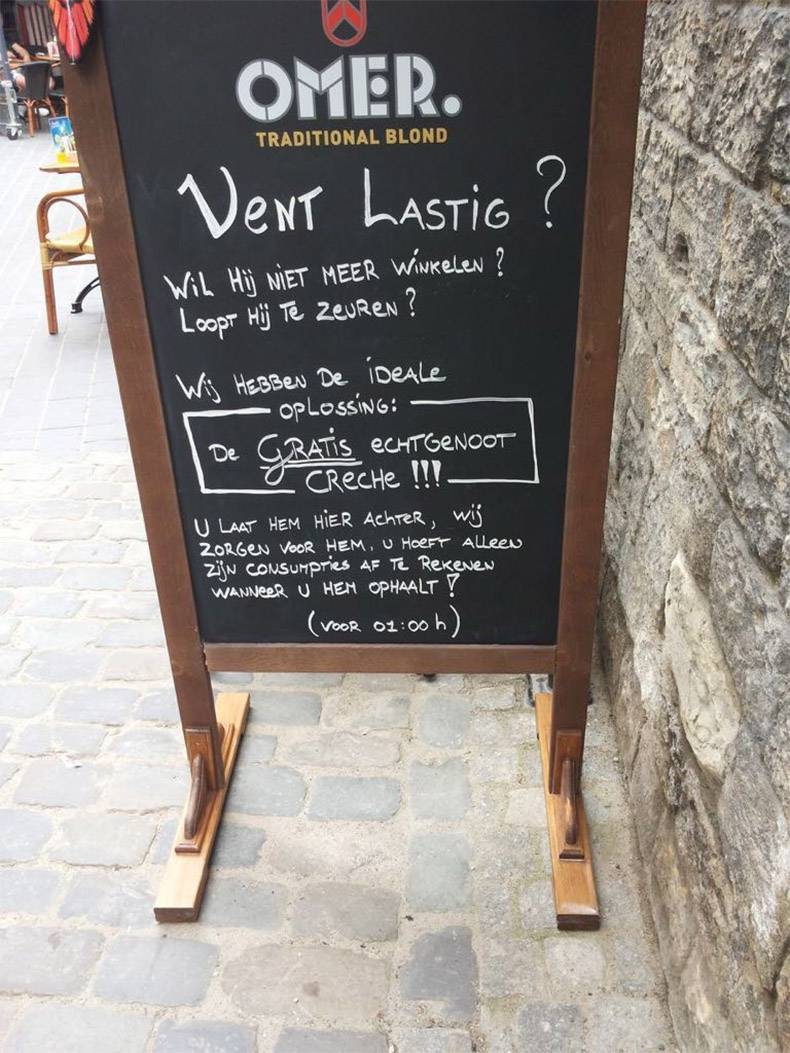 OMER.
TRADITIONAL BLOND
VENT LASTIG ?
WIL HIJ NIET MEER WINKELEN ?
LOOPT HIJ TE ZEUREN ?
WIJ HEBBEN DE IDEALE
OPLOSSING:
DE GRATIS ECHTGENOOT
CRECHE !!!
U LAAT HEM HIER ACHTER, WIJ
ZORGEN VOOR HEM. U HOEFT ALLEEN
ZIJN CONSUMPTIES AF TE REKENEN
WANNEER U HEM OPHAALT !
(VOOR 01:00 h)